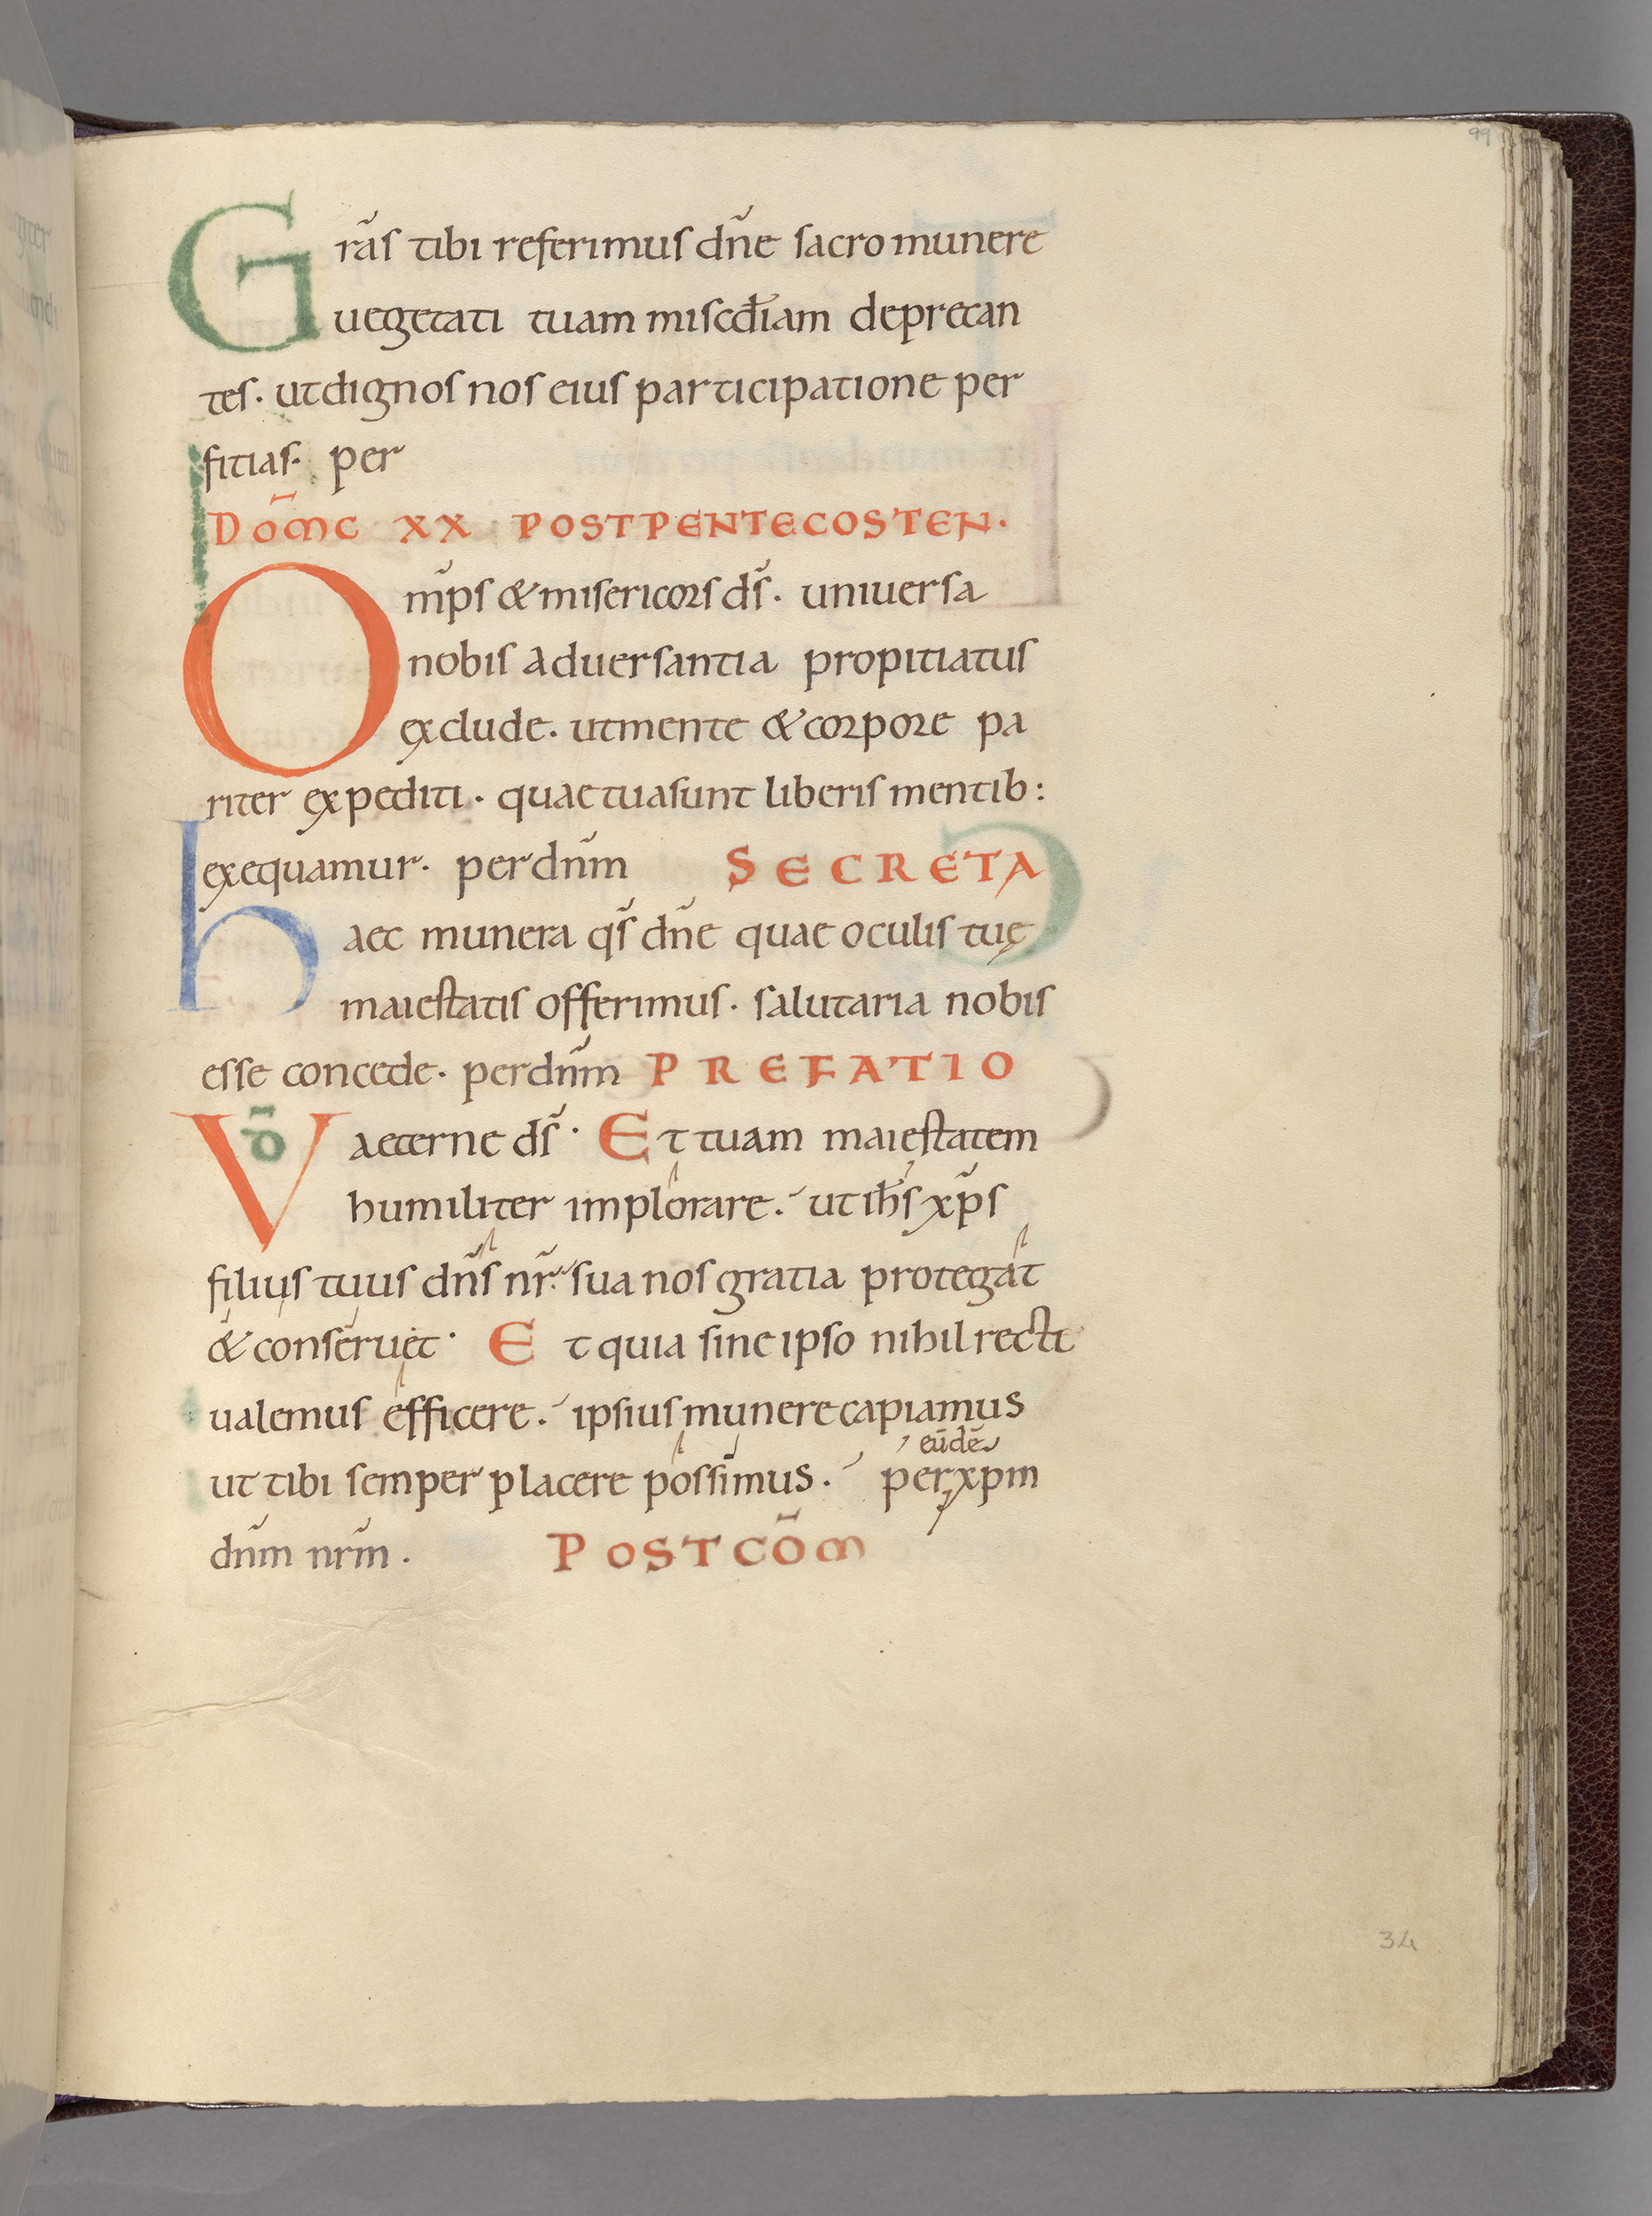 99
Grãs tibi referimus dñe sacro munere
uegetati tuam miscđiam deprecan
tes. ut dignos nos eius participatione per
fitias. per
DOM̃C XX POST PENTECOSTEN.
Om̃ps & misericors ds̃. uniuersa
nobis aduersantia propitiatus
exclude. ut mente & corpore pa
riter expediti. quae tua sunt liberis mentib:
exequamur. per dñm SECRETA
haec munera qs̃ dñe quae oculis tuę
maiestatis offerimus. salutaria nobis
esse concede. per dñm PREFATIO
VD̃ aeterne ds̃. Et tuam maiestatem
humiliter implorare. ut ih̃s xp̃s
filius tuus dñs nr̃. sua nos gratia protegat
& conseruet. Et quia sine ipso nihil recti
ualemus efficere. ipsius munere capiamus
eũdẽ
ut tibi semper placere possimus. per xpm
dñm nrm̃. POSTCOM̃
34